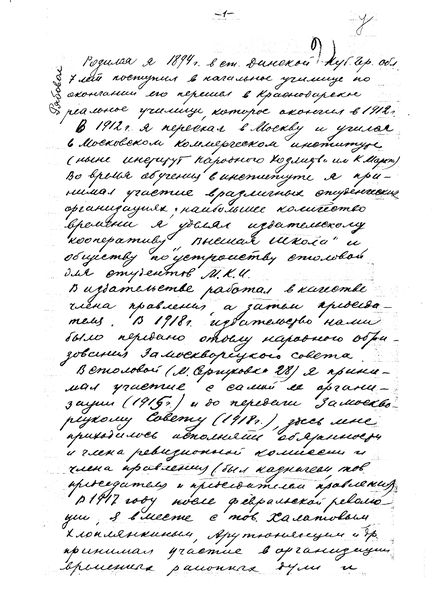 - 1 -
Рябовол
Родился я 1894г. в ст. Динской Куб. обл.
7 лет поступил в начальное училище по
окончании его перешел в Краснодарское
реальное училище, которое окончил в 1912г.
В 1912г. я переехал в Москву и учился
в Московском коммерческом институте
(ныне институт Народного Хозяйства им К. Маркса)
Во время обучения в институте я при-
нимал участие в различных студенческих
организациях, наибольшее количество
времени я уделял издательскому
кооперативу "Высшая школа" и
обществу по "устройству столовой
для студентов М.К.И.
В издательстве работал в качестве
члена правления, а затем председа-
теля. В 1918г. издательство нами
было передано отделу народного обра-
зования Замоскворецкого совета.
В столовой (М. Серпуховка 28) я прини-
мал участие с самой ее органи-
зации (1915г) и до передачи Замоскво-
рецкому Совету (1918г.), здесь мне
приходилось исполнять обязанности
и члена ревизионной комиссии и
члена правления (был казначеем тов
председателя и председателем правления)
В 1917 году после февральской револю-
ции, я вместе с тов. Халатовым
Хлоплянкиным, Арутюнянцем и др.
принимал участие в организации
временных районных дум и